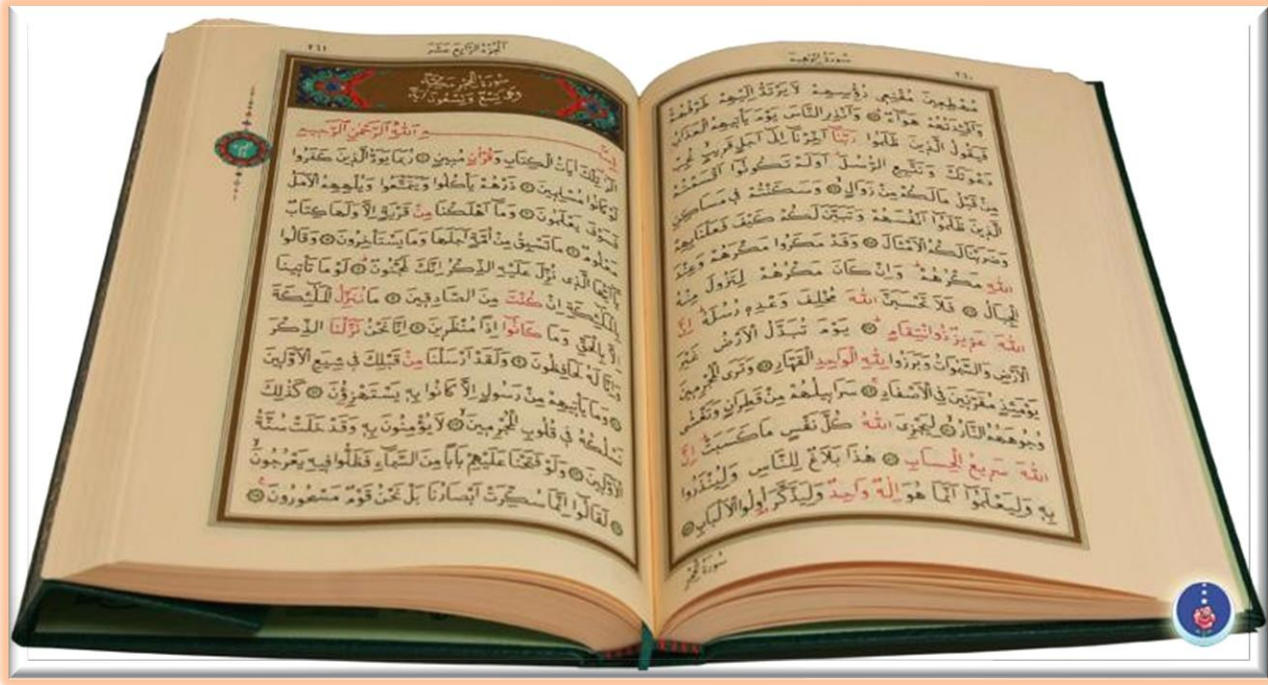 سُورَةُ إِبْرٰهِيمَ ٢٦٠
مُهْطِعِينَ مُقْنِعِي رُؤُسِهِمْ لَا يَرْتَدُّ اِلَيْهِمْ طَرْفُهُمْ
وَاَفْئِدَتُهُمْ هَوَاءٌ وَاَنْذِرِ النَّاسَ يَوْمَ يَأْتِيهِمُ الْعَذَابُ
فَيَقُولُ الَّذِينَ ظَلَمُوا رَبَّنَا اَخِّرْنَا اِلٰى اَجَلٍ قَرِيبٍ نُجِبْ
دَعْوَتَكَ وَنَتَّبِعِ الرُّسُلَ اَوَلَمْ تَكُونُوا اَقْسَمْتُمْ
مِنْ قَبْلُ مَالَكُمْ مِنْ زَوَالٍ وَسَكَنْتُمْ فِي مَسَاكِنِ
الَّذِينَ ظَلَمُوا اَنْفُسَهُمْ وَتَبَيَّنَ لَكُمْ كَيْفَ فَعَلْنَا بِهِمْ
وَضَرَبْنَا لَكُمُ الْاَمْثَالَ وَقَدْ مَكَرُوا مَكْرَهُمْ وَعِنْدَ
اللّٰهِ مَكْرُهُمْ وَاِنْ كَانَ مَكْرُهُمْ لِتَزُولَ مِنْهُ
الْجِبَالُ فَلَا تَحْسَبَنَّ اللّٰهَ مُخْلِفَ وَعْدِهِ رُسُلَهُ اِنَّ
اللّٰهَ عَزِيزٌ ذُو انْتِقَامٍ يَوْمَ تُبَدَّلُ الْاَرْضُ غَيْرَ
الْاَرْضِ وَالسَّمٰوَاتُ وَبَرَزُوا لِلّٰهِ الْوَاحِدِ الْقَهَّارِ وَتَرَى الْمُجْرِمِينَ
يَوْمَئِذٍ مُقَرَّنِينَ فِي الْاَصْفَادِ سَرَابِيلُهُمْ مِنْ قَطِرَانٍ وَتَغْشٰى
وُجُوهَهُمُ النَّارُ لِيَجْزِيَ اللّٰهُ كُلَّ نَفْسٍ مَا كَسَبَتْ اِنَّ
اللّٰهَ سَرِيعُ الْحِسَابِ هٰذَا بَلَاغٌ لِلنَّاسِ وَلِيُنْذَرُوا
بِهِ وَلِيَعْلَمُوا اَنَّمَا هُوَ اِلٰهٌ وَاحِدٌ وَلِيَذَّكَّرَ اُولُوا الْاَلْبَابِ
سُورَةُ الْحِجْرِ
اَلْجُزْءُ الرَّابِعَ عَشَرَ ٢٦١
سُورَةُ الْحِجْرِ مَكِّيَّةٌ
وَهِيَ تِسْعٌ وَتِسْعُونَ اٰيَةً
بِسْمِ اللّٰهِ الرَّحْمٰنِ الرَّحِيمِ
الٓرٰ تِلْكَ اٰيَاتُ الْكِتَابِ وَقُرْاٰنٍ مُبِينٍ رُبَمَا يَوَدُّ الَّذِينَ كَفَرُوا
لَوْ كَانُوا مُسْلِمِينَ ذَرْهُمْ يَأْكُلُوا وَيَتَمَتَّعُوا وَيُلْهِهِمُ الْاَمَلُ
فَسَوْفَ يَعْلَمُونَ وَمَا اَهْلَكْنَا مِنْ قَرْيَةٍ اِلَّا وَلَهَا كِتَابٌ
مَعْلُومٌ مَا تَسْبِقُ مِنْ اُمَّةٍ اَجَلَهَا وَمَا يَسْتَأْخِرُونَ وَقَالُوا
يَا اَيُّهَا الَّذِي نُزِّلَ عَلَيْهِ الذِّكْرُ اِنَّكَ لَمَجْنُونٌ لَوْ مَا تَأْتِينَا
بِالْمَلٰئِكَةِ اِنْ كُنْتَ مِنَ الصَّادِقِينَ مَا نُنَزِّلُ الْمَلٰئِكَةَ
اِلَّا بِالْحَقِّ وَمَا كَانُوا اِذًا مُنْظَرِينَ اِنَّا نَحْنُ نَزَّلْنَا الذِّكْرَ
وَاِنَّا لَهُ لَحَافِظُونَ وَلَقَدْ اَرْسَلْنَا مِنْ قَبْلِكَ فِي شِيَعِ الْاَوَّلِينَ
وَمَا يَأْتِيهِمْ مِنْ رَسُولٍ اِلَّا كَانُوا بِهِ يَسْتَهْزِؤُنَ كَذٰلِكَ
نَسْلُكُهُ فِي قُلُوبِ الْمُجْرِمِينَ لَا يُؤْمِنُونَ بِهِ وَقَدْ خَلَتْ سُنَّةُ
الْاَوَّلِينَ وَلَوْ فَتَحْنَا عَلَيْهِمْ بَابًا مِنَ السَّمَاءِ فَظَلُّوا فِيهِ يَعْرُجُونَ
لَقَالُوا اِنَّمَا سُكِّرَتْ اَبْصَارُنَا بَلْ نَحْنُ قَوْمٌ مَسْحُورُونَ